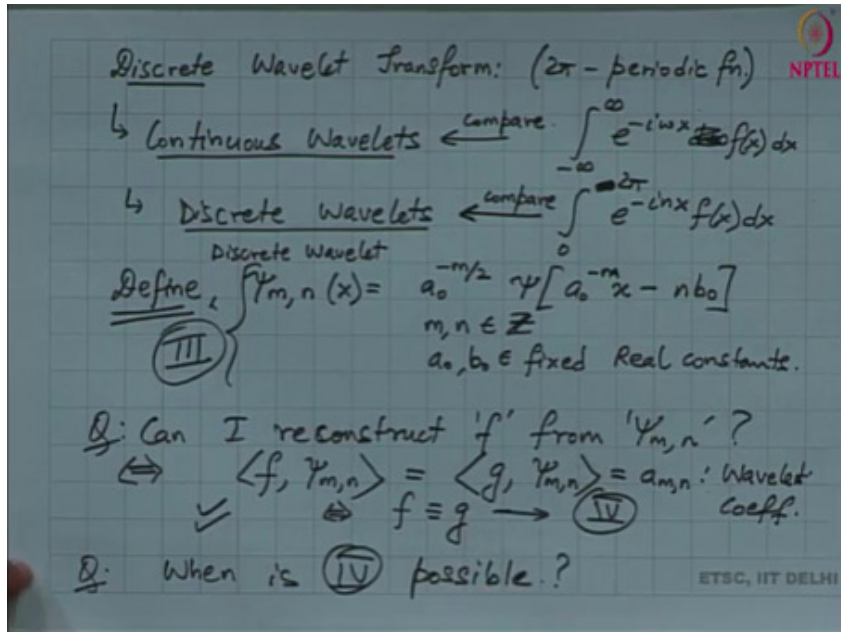 Discrete Wavelet Transform: (2π - periodic fn.)
NPTEL
↳ Continuous Wavelets ←compare. ∫_{-∞}^{∞} e^{-iωx} f(x) dx
↳ Discrete Wavelets ←compare ∫_0^{2π} e^{-inx} f(x) dx
Discrete Wavelet
Define, Ψm,n (x) = a₀^{-m/2} Ψ[a₀^{-m}x - nb₀]
III
m,n ∈ Z
a₀, b₀ ∈ fixed Real constants.
Q: Can I reconstruct 'f' from 'Ψm,n'?
⇔ ⟨f, Ψm,n⟩ = ⟨g, Ψm,n⟩ = am,n : Wavelet
coeff.
⇔ f ≡ g → IV
Q: When is IV possible.?
ETSC, IIT DELHI